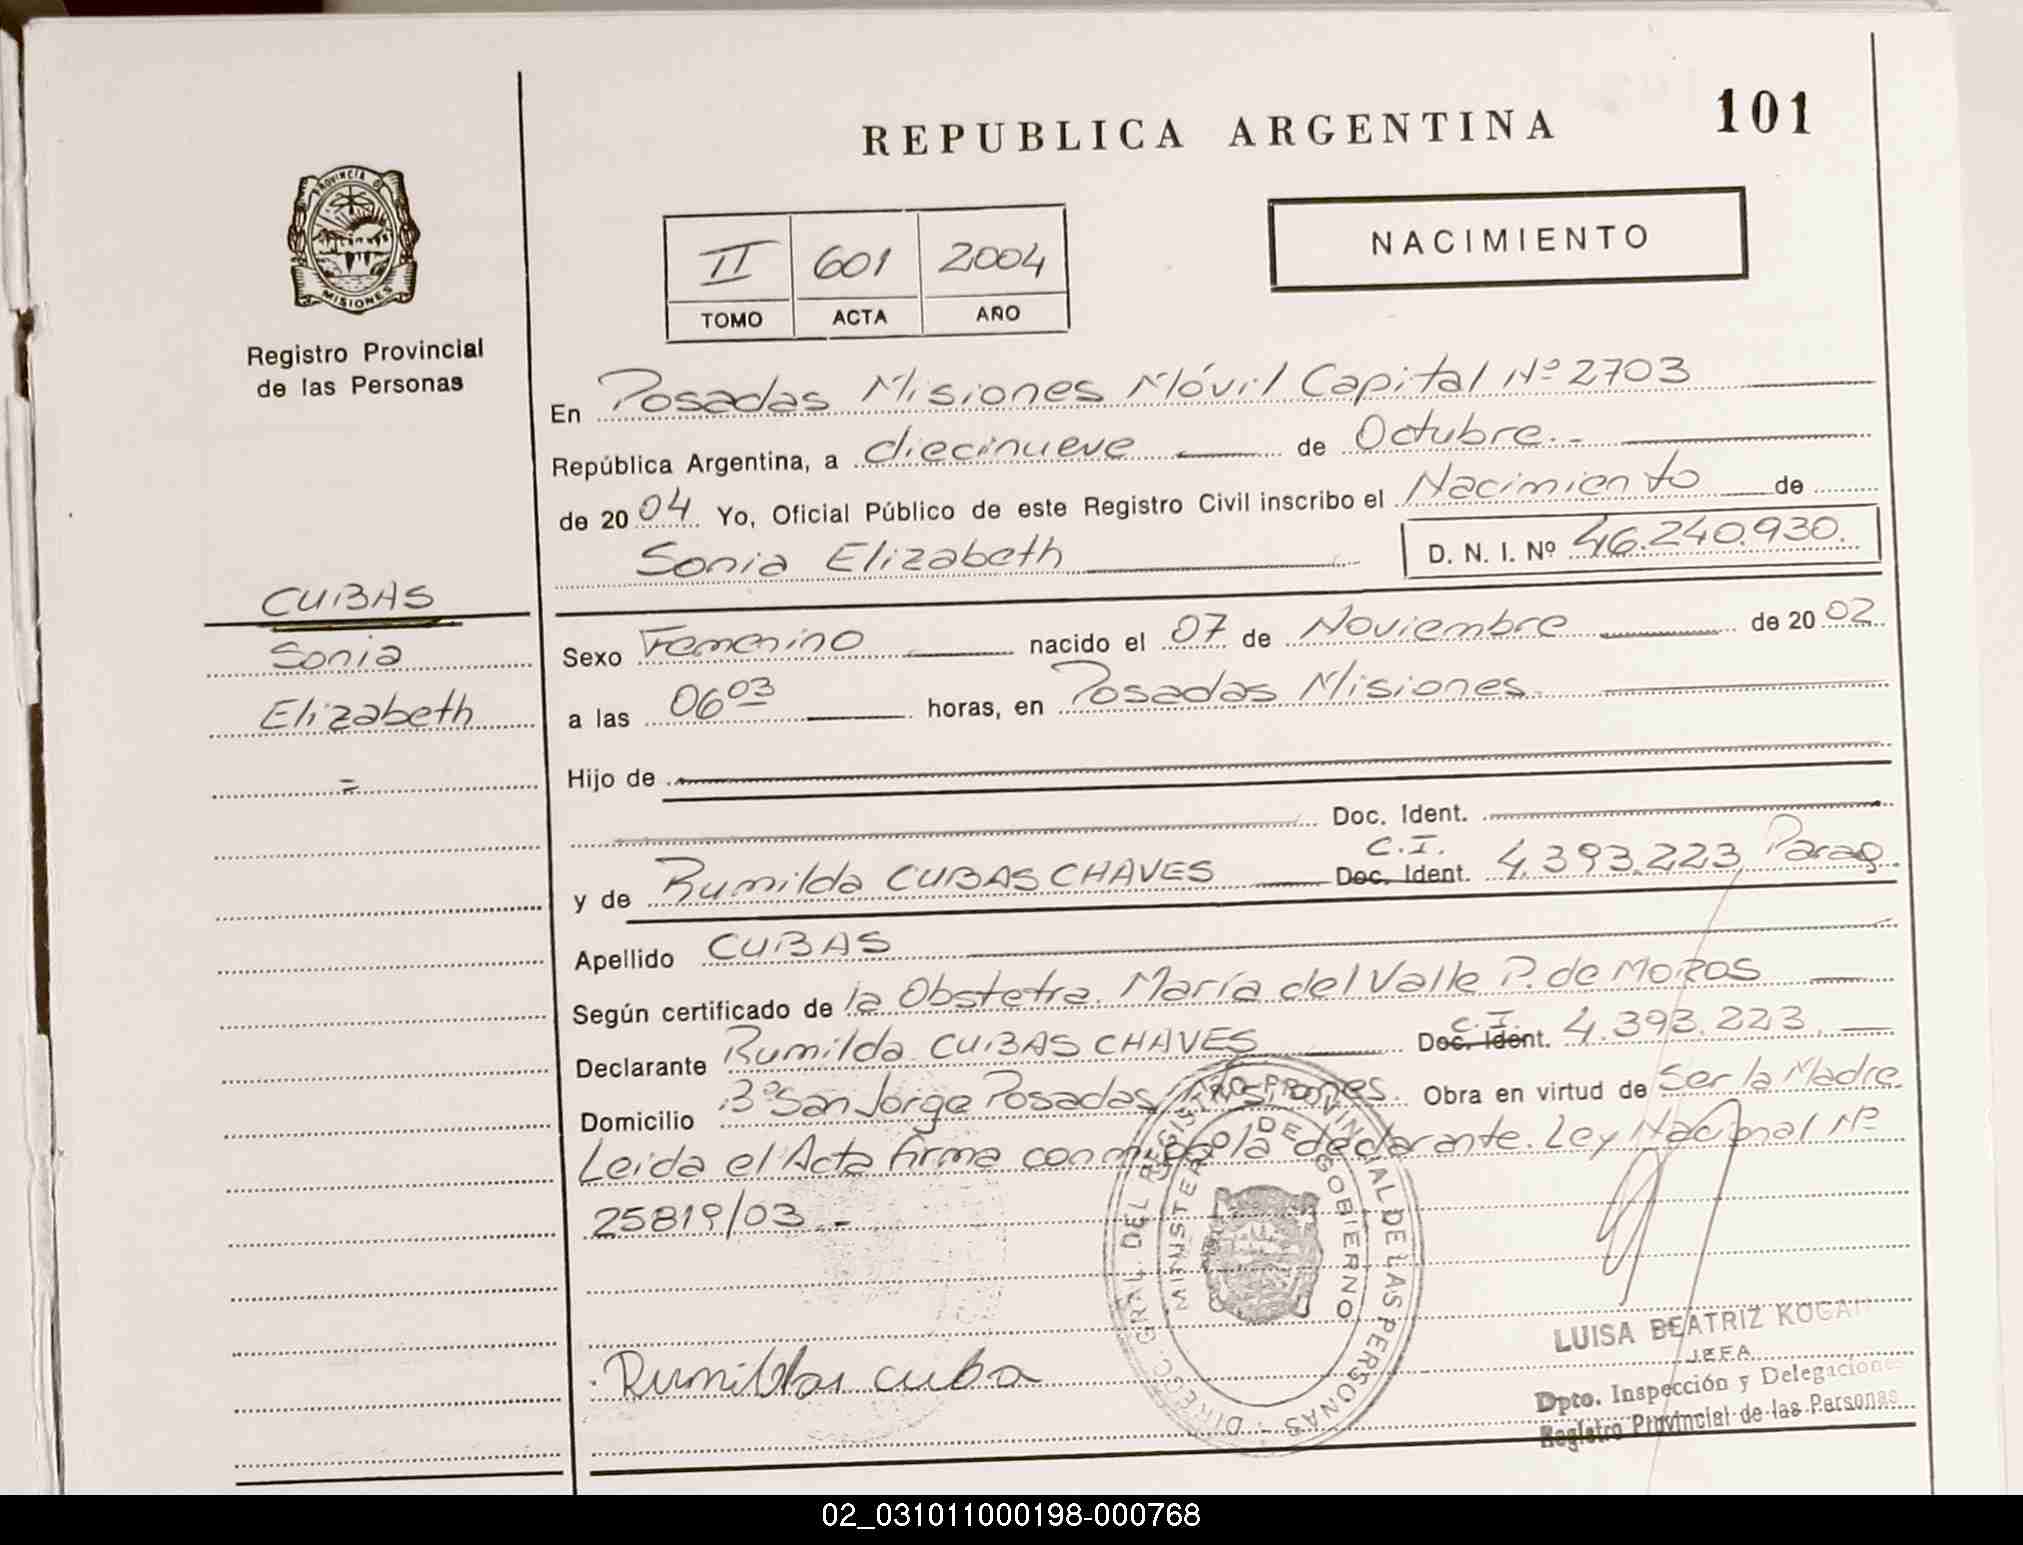 REPUBLICA ARGENTINA
101
PROVINCIA DE
MISIONES
Registro Provincial
de las Personas
II 601 2004
TOMO ACTA AÑO
NACIMIENTO
En Posadas Misiones Móvil Capital Nº 2703
República Argentina, a diecinueve de Octubre.-
de 2004 Yo, Oficial Público de este Registro Civil inscribo el Nacimiento de
Sonia Elizabeth
D. N. I. Nº 46.240.930.
CUBAS
Sonia
Elizabeth
=
Sexo Femenino nacido el 07 de Noviembre de 2002
a las 06 03 horas, en Posadas Misiones
Hijo de
Doc. Ident.
C.I.
y de Rumilda CUBAS CHAVES Doc. Ident. 4.393.223 Parag
Apellido CUBAS
Según certificado de la Obstetra. María del Valle P. de MOROS
C.I.
Declarante Rumilda CUBAS CHAVES Doc. Ident. 4.393.223
Domicilio Bº San Jorge Posadas Misiones. Obra en virtud de Ser la Madre
Leida el Acta firma conmigo la declarante. Ley Nacional Nº
25819/03.-
DIRECC. GRAL. DEL REGISTRO PROVINCIAL DE LAS PERSONAS
MINISTERIO DE GOBIERNO
Rumilda cuba
LUISA BEATRIZ KOGAN
JEFA
Dpto. Inspección y Delegaciones
Registro Provincial de las Personas
02_031011000198-000768